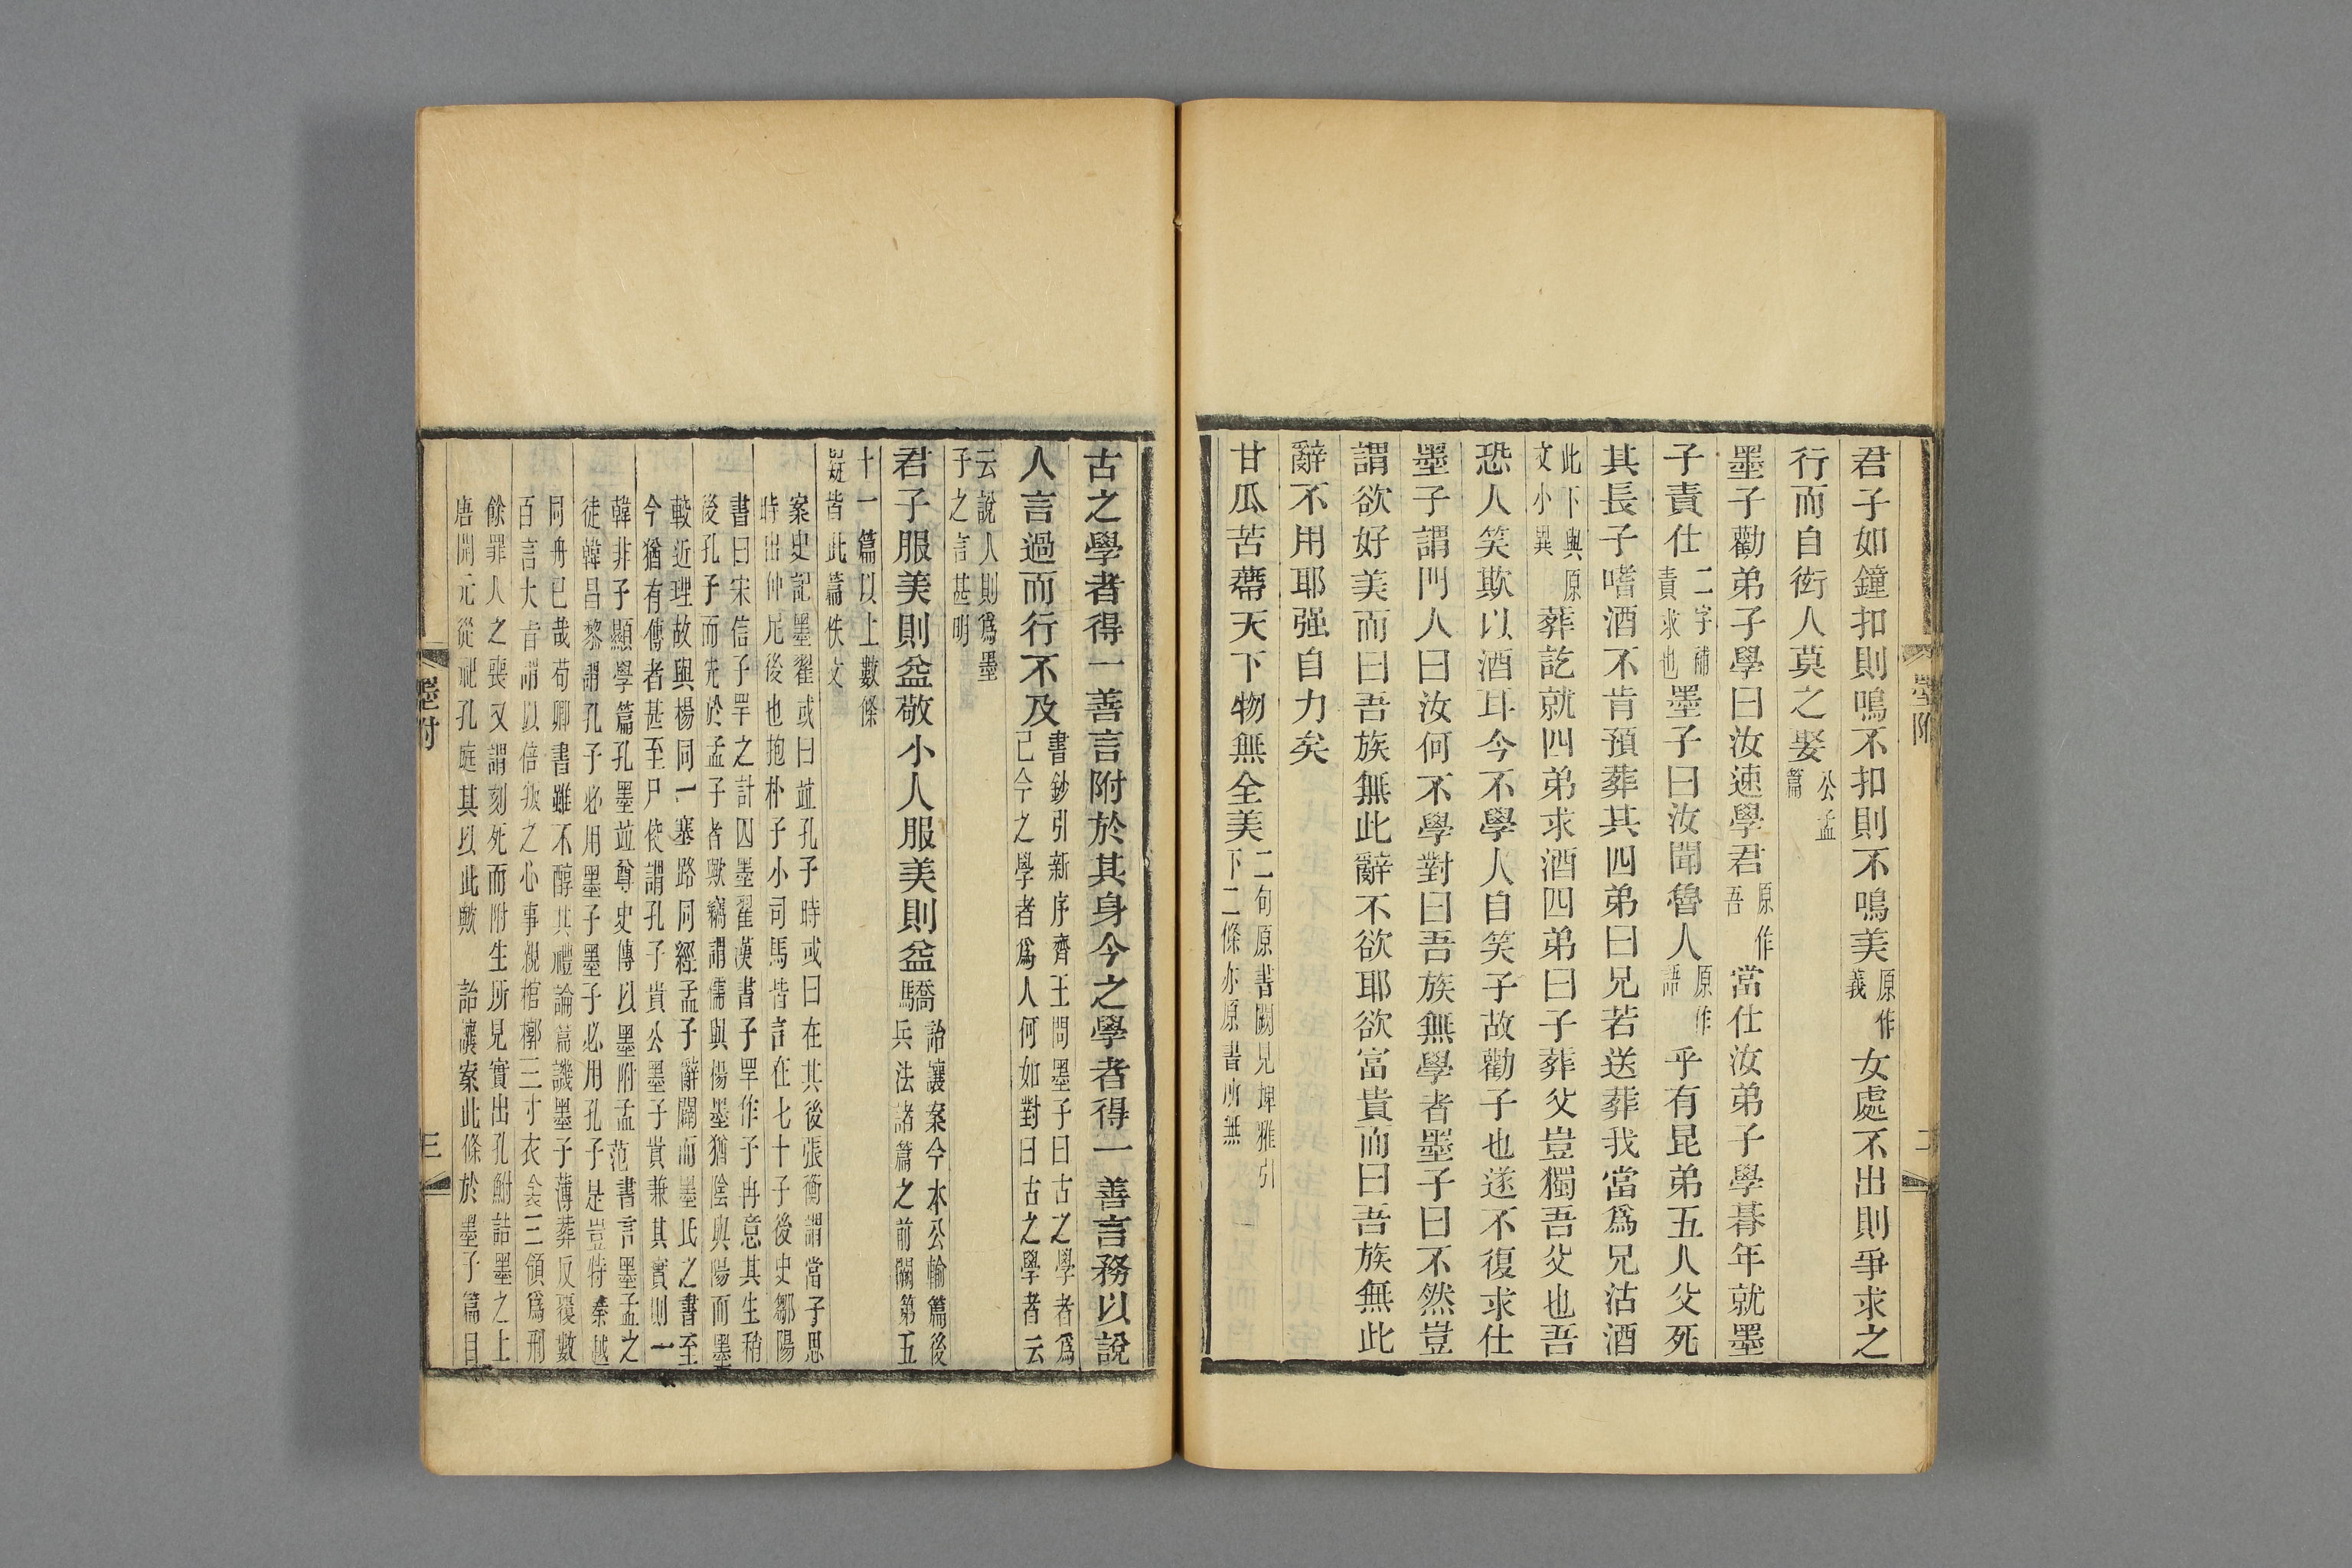 君子如鐘扣則鳴不扣則不鳴美原作義女處不出則爭求之
行而自衒人莫之娶公孟篇
墨子勸弟子學曰汝速學君原作吾當仕汝弟子學朞年就墨
子責仕二字補責求也墨子曰汝聞魯人原作語乎有昆弟五人父死
其長子嗜酒不肯預葬其四弟曰兄若送葬我當爲兄沽酒
此下與原文小異葬訖就四弟求酒四弟曰子葬父豈獨吾父也吾
恐人笑欺以酒耳今不學人自笑子故勸子也遂不復求仕
墨子謂門人曰汝何不學對曰吾族無學者墨子曰不然豈
謂欲好美而曰吾族無此辭不欲耶欲富貴而曰吾族無此
辭不用耶强自力矣
甘瓜苦蔕天下物無全美二句原書闕見埤雅引下二條亦原書所無
墨附
二
古之學者得一善言附於其身今之學者得一善言務以說
人言過而行不及書鈔引新序齊王問墨子曰古之學者爲己今之學者爲人何如對曰古之學者云
云說人則爲墨子之言甚明
君子服美則益敬小人服美則益驕詒讓案今本公輸篇後兵法諸篇之前闕第五
十一篇以上數條疑皆此篇佚文
案史記墨翟或曰竝孔子時或曰在其後張衡謂當子思
時出仲尼後也抱朴子小司馬皆言在七十子後史鄒陽
書曰宋信子罕之計囚墨翟漢書子罕作子冉意其生稍
後孔子而先於孟子者歟竊謂儒與楊墨猶陰與陽而墨
較近理故與楊同一塞路同經孟子辭闢而墨氏之書至
今猶有傳者甚至尸佼謂孔子貴公墨子貴兼其實則一
韓非子顯學篇孔墨竝尊史傳以墨附孟范書言墨孟之
徒韓昌黎謂孔子必用墨子墨子必用孔子是豈特秦越
同舟已哉荀卿書雖不醇其禮論篇譏墨子薄葬反覆數
百言大旨謂以倍叛之心事親棺槨三寸衣衾三領爲刑
餘罪人之喪又謂刻死而附生所見實出孔鮒詰墨之上
唐開元從祀孔庭其以此歟　詒讓案此條於墨子篇目
墨附
三